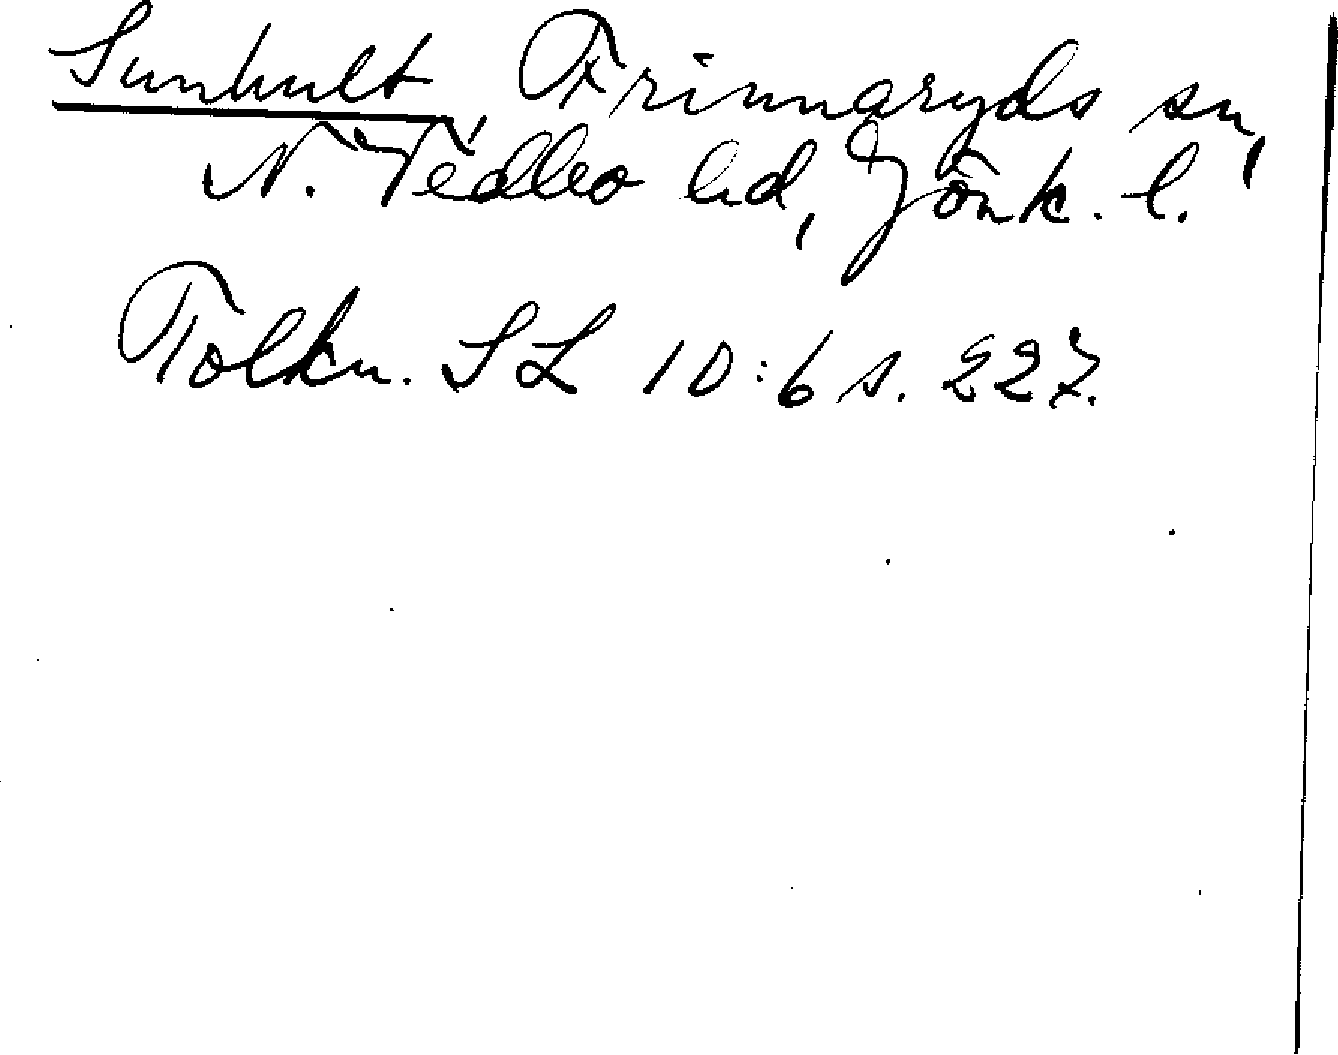 Sunhult, Frinnaryds sn,
N. Vedbo hd, Jönk. l.
Tolkn. SL 10:6 s. 227.